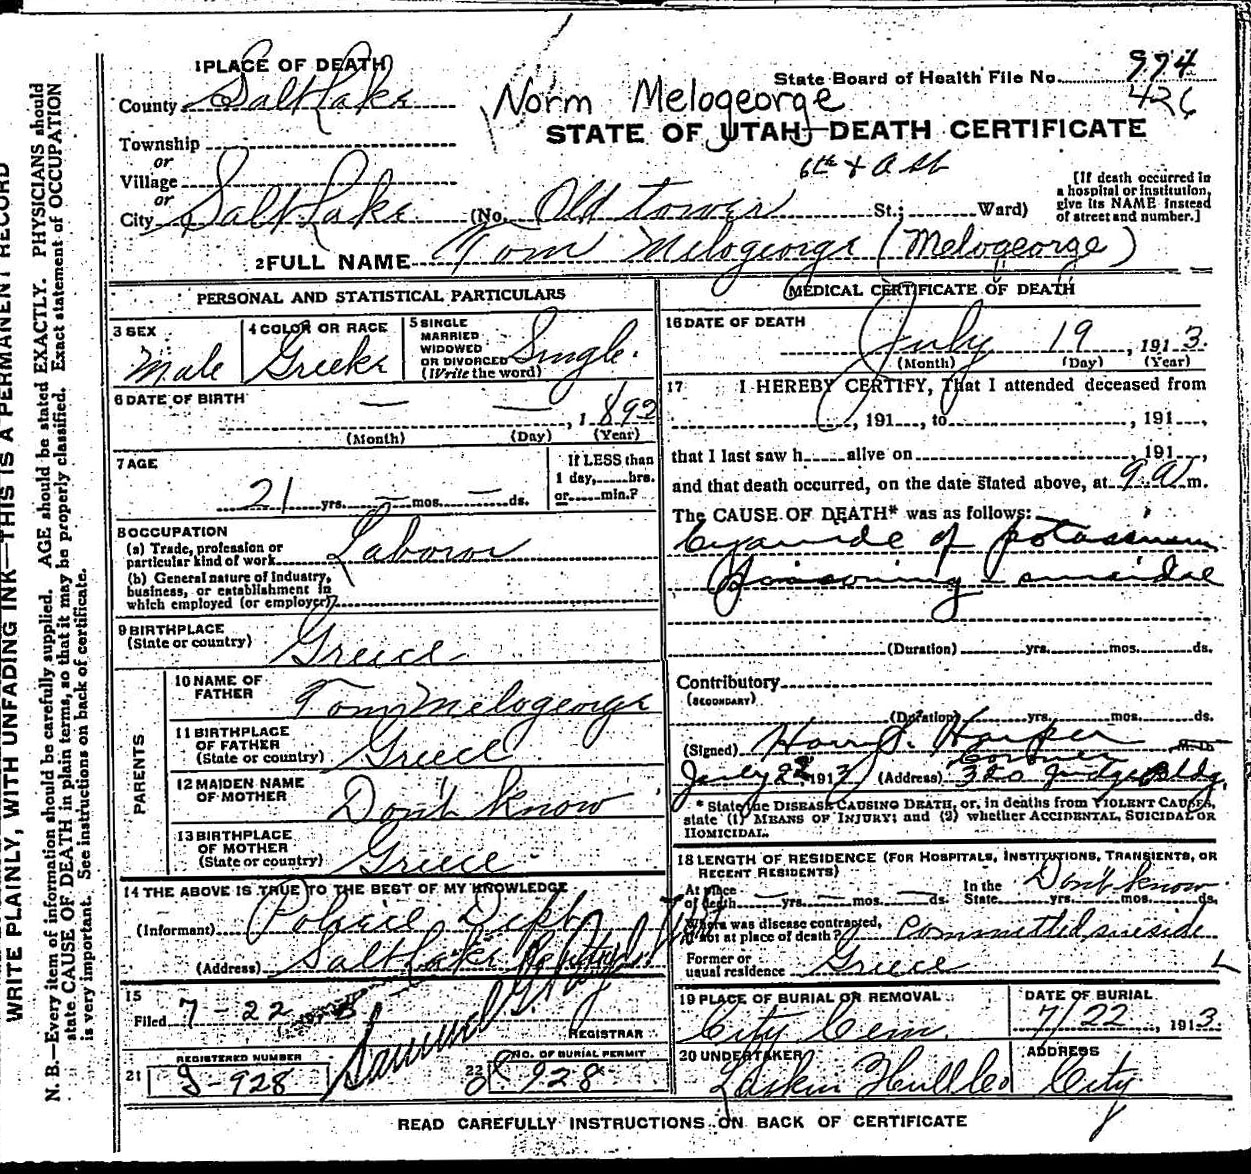 WRITE PLAINLY, WITH UNFADING INK—THIS IS A PERMANENT RECORD
N. B.—Every item of information should be carefully supplied. AGE should be stated EXACTLY. PHYSICIANS should
state CAUSE OF DEATH in plain terms, so that it may be properly classified. Exact statement of OCCUPATION
is very important. See instructions on back of certificate.
1 PLACE OF DEATH
County Salt Lake
Township
or
Village
or
City Salt Lake
State Board of Health File No. 974
426
Norm Melogeorge
STATE OF UTAH—DEATH CERTIFICATE
6th & A St
(No. Old tower St.; Ward)
[If death occurred in
a hospital or institution,
give its NAME instead
of street and number.]
2 FULL NAME Tom Melogeorge (Melogeorge)
PERSONAL AND STATISTICAL PARTICULARS
3 SEX
Male
4 COLOR OR RACE
Greek
5 SINGLE
MARRIED
WIDOWED
OR DIVORCED
(Write the word)
Single.
6 DATE OF BIRTH
— — , 1892
(Month) (Day) (Year)
7 AGE
21 yrs. — mos. — ds.
If LESS than
1 day, hrs.
or min.?
8 OCCUPATION
(a) Trade, profession or
particular kind of work Laborer
(b) General nature of Industry,
business, or establishment in
which employed (or employer)
9 BIRTHPLACE
(State or country) Greece
PARENTS
10 NAME OF
FATHER Tom Melogeorge
11 BIRTHPLACE
OF FATHER
(State or country) Greece
12 MAIDEN NAME
OF MOTHER Don't know
13 BIRTHPLACE
OF MOTHER
(State or country) Greece
14 THE ABOVE IS TRUE TO THE BEST OF MY KNOWLEDGE
(Informant) Police Dept
(Address) Salt Lake
15
Filed 7-22
REGISTRAR
REGISTERED NUMBER
21 928
NO. OF BURIAL PERMIT
22 928
MEDICAL CERTIFICATE OF DEATH
16 DATE OF DEATH
July 19, 1913.
(Month) (Day) (Year)
17 I HEREBY CERTIFY, That I attended deceased from
, 191 , to , 191 ,
that I last saw h alive on , 191 ,
and that death occurred, on the date stated above, at 9 a m.
The CAUSE OF DEATH* was as follows:
Cyanide of potassium
Poisoning suicidal
(Duration) yrs. mos. ds.
Contributory
(SECONDARY)
(Duration) yrs. mos. ds.
(Signed) Harry S. Harper M. D.
Coroner
July 22 1913 (Address) 320 Judge Bldg.
* State the DISEASE CAUSING DEATH, or, in deaths from VIOLENT CAUSES,
state (1) MEANS OF INJURY; and (2) whether ACCIDENTAL, SUICIDAL OR
HOMICIDAL.
18 LENGTH OF RESIDENCE (FOR HOSPITALS, INSTITUTIONS, TRANSIENTS, OR
RECENT RESIDENTS)
At place
of death — yrs. — mos. — ds.
In the
State yrs. mos. ds. Don't know
Where was disease contracted,
if not at place of death? committed suicide
Former or
usual residence Greece
19 PLACE OF BURIAL OR REMOVAL
City Cem.
DATE OF BURIAL
7/22, 1913
20 UNDERTAKER
Larkin Hull Co
ADDRESS
City
READ CAREFULLY INSTRUCTIONS ON BACK OF CERTIFICATE